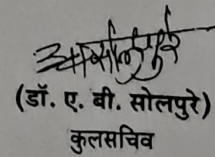 (डॉ. ए. बी. सोलपुरे)
कुलसचिव